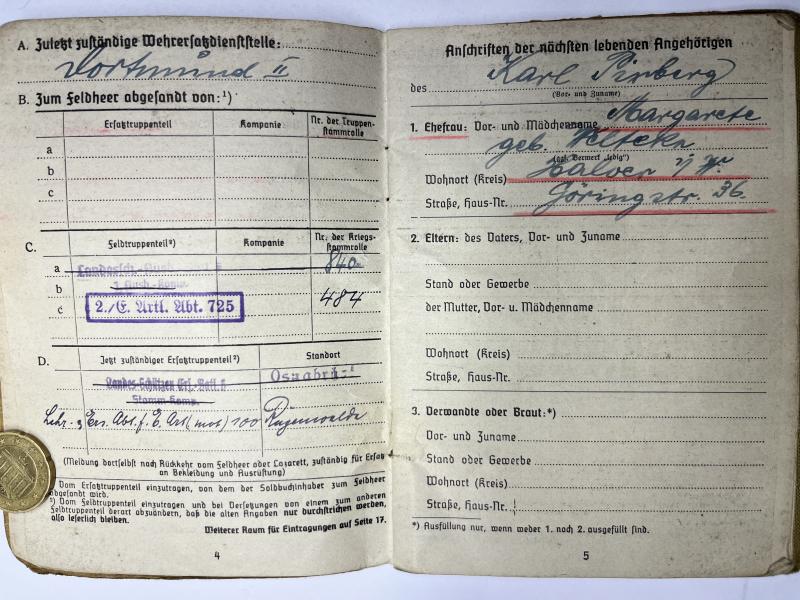 A. Zuletzt zuständige Wehrersatzdienststelle:
Dortmund II
B. Zum Feldheer abgesandt von:¹)
Ersatztruppenteil Kompanie Nr. der Truppenstammrolle
a
b
c
C. Feldtruppenteil²) Kompanie Nr. der Kriegsstammrolle
a 840
b
c 2./E. Artl. Abt. 725 484
D. Jetzt zuständiger Ersatztruppenteil²) Standort
Osnabrü
Stamm-Komp.
Lehr- Ers. Abt. f. E. Art (mot) 100 Rügenwalde
(Meldung dortselbst nach Rückkehr vom Feldheer oder Lazarett, zuständig für Ersatz
an Bekleidung und Ausrüstung)
Vom Ersatztruppenteil einzutragen, von dem der Soldbuchinhaber zum Feldheer
abgesandt wird.
²) Vom Feldtruppenteil einzutragen und bei Versetzungen von einem zum anderen
Feldtruppenteil derart abzuändern, daß die alten Angaben nur durchstrichen werden,
also leserlich bleiben.
Weiterer Raum für Eintragungen auf Seite 17.
4
Anschriften der nächsten lebenden Angehörigen
des Karl Pirberg
(Vor- und Zuname)
1. Ehefrau: Vor- und Mädchenname Margarete
geb.
(ggf. Vermerk „ledig")
Wohnort (Kreis) Halver i/W.
Straße, Haus-Nr. Göringstr. 36.
2. Eltern: des Vaters, Vor- und Zuname
Stand oder Gewerbe
der Mutter, Vor- u. Mädchenname
Wohnort (Kreis)
Straße, Haus-Nr.
3. Verwandte oder Braut:*)
Vor- und Zuname
Stand oder Gewerbe
Wohnort (Kreis)
Straße, Haus-Nr.
*) Ausfüllung nur, wenn weder 1. noch 2. ausgefüllt sind.
5